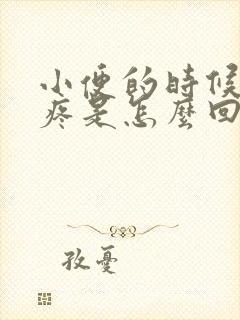 小便的時候
疼是怎麼回
孜憂